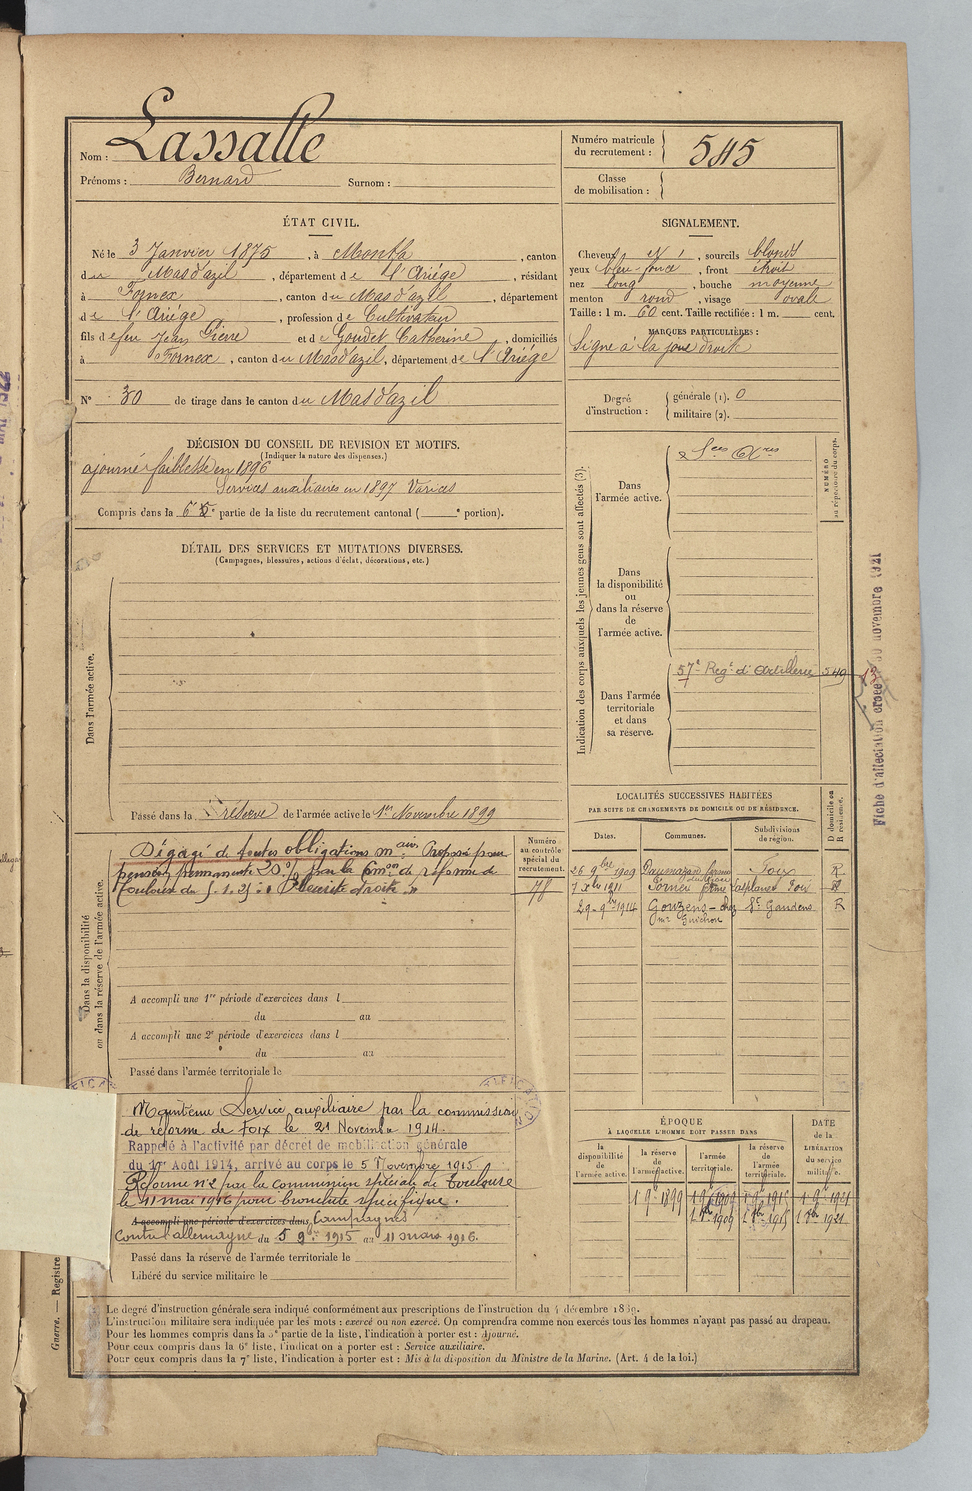 Nom : Lassalle
Prénoms : Bernard Surnom :
Numéro matricule
du recrutement : 545
Classe
de mobilisation :
ÉTAT CIVIL.
Né le 3 Janvier 1875, à Montfa, canton
du Mas d'azil, département de l'Ariége, résidant
à Fornex, canton du Mas d'azil, département
de l'Ariége, profession de Cultivateur
fils de feu Jean Pierre et de Goudet Catherine, domiciliés
à Fornex, canton du Mas d'azil, département de l'Ariége
N° 30 de tirage dans le canton du Mas d'azil
SIGNALEMENT.
Cheveux et, sourcils blonds
yeux bleu-foncé, front étroit
nez long, bouche moyenne
menton rond, visage ovale
Taille : 1 m. 60 cent. Taille rectifiée : 1 m. cent.
MARQUES PARTICULIÈRES :
Signe à la joue droite
Degré
d'instruction :
générale (1). 0
militaire (2).
DÉCISION DU CONSEIL DE REVISION ET MOTIFS.
(Indiquer la nature des dispenses.)
ajourné faiblesse en 1896
Services auxiliaires en 1897 Varices
Compris dans la 6e partie de la liste du recrutement cantonal ( e portion).
DÉTAIL DES SERVICES ET MUTATIONS DIVERSES.
(Campagnes, blessures, actions d'éclat, décorations, etc.)
Dans l'armée active.
Passé dans la réserve de l'armée active le 1er Novembre 1899
Indication des corps auxquels les jeunes gens sont affectés (3).
NUMÉRO
au répertoire du corps.
Dans
l'armée active.
Sces Axres
Dans
la disponibilité
ou
dans la réserve
de
l'armée active.
Dans l'armée
territoriale
et dans
sa réserve.
57e Regt d'Artillerie 549
Fiche d'affectation créée novembre 1921
LOCALITÉS SUCCESSIVES HABITÉES
PAR SUITE DE CHANGEMENTS DE DOMICILE OU DE RÉSIDENCE.
Dates. Communes. Subdivisions
de région.
D domicile ou
R résidence.
26 9bre 1909 Foix R
7 Xbre 1911 Fornex Foix
29-9bre 1914 Gouzens - chez St Gaudens R
Mr Guichou
Dans la disponibilité
ou dans la réserve de l'armée active.
Numéro
au contrôle
spécial du
recrutement.
78
Dégagé de toutes obligations maires Proposé pour
pension permanente 20 % par la Comon de réforme de
Toulouse du "Pleurite droite"
A accompli une 1re période d'exercices dans l
du au
A accompli une 2e période d'exercices dans l
du au
Passé dans l'armée territoriale le
Maintenu Service auxiliaire par la commission
de réforme de Foix le 21 Novembre 1914.
Rappelé à l'activité par décret de mobilisation générale
du 1er Août 1914, arrivé au corps le 5 Novembre 1915
Réformé n°2 par la commission spéciale de Toulouse
le 11 mai 1916 pour bronchite spécifique.
A accompli une période d'exercices dans Campagnes
Contre allemagne du 5 9bre 1915 au 11 mars 1916.
Passé dans la réserve de l'armée territoriale le
Libéré du service militaire le
ÉPOQUE
À LAQUELLE L'HOMME DOIT PASSER DANS
DATE
de la
LIBÉRATION
du service
militaire.
la
disponibilité
de
l'armée active.
la réserve
de
l'armée active.
l'armée
territoriale.
la réserve
de
l'armée
territoriale.
1 9bre 1899 1 9bre 1909 1 9bre 1915 1 9bre 1921
1 8bre 1909 1 8bre 1915 1 8bre 1921
Guerre. — Registre
Le degré d'instruction générale sera indiqué conformément aux prescriptions de l'instruction du 4 décembre 1889.
L'instruction militaire sera indiquée par les mots : exercé ou non exercé. On comprendra comme non exercés tous les hommes n'ayant pas passé au drapeau.
Pour les hommes compris dans la 5e partie de la liste, l'indication à porter est : Ajourné.
Pour ceux compris dans la 6e liste, l'indication à porter est : Service auxiliaire.
Pour ceux compris dans la 7e liste, l'indication à porter est : Mis à la disposition du Ministre de la Marine. (Art. 4 de la loi.)